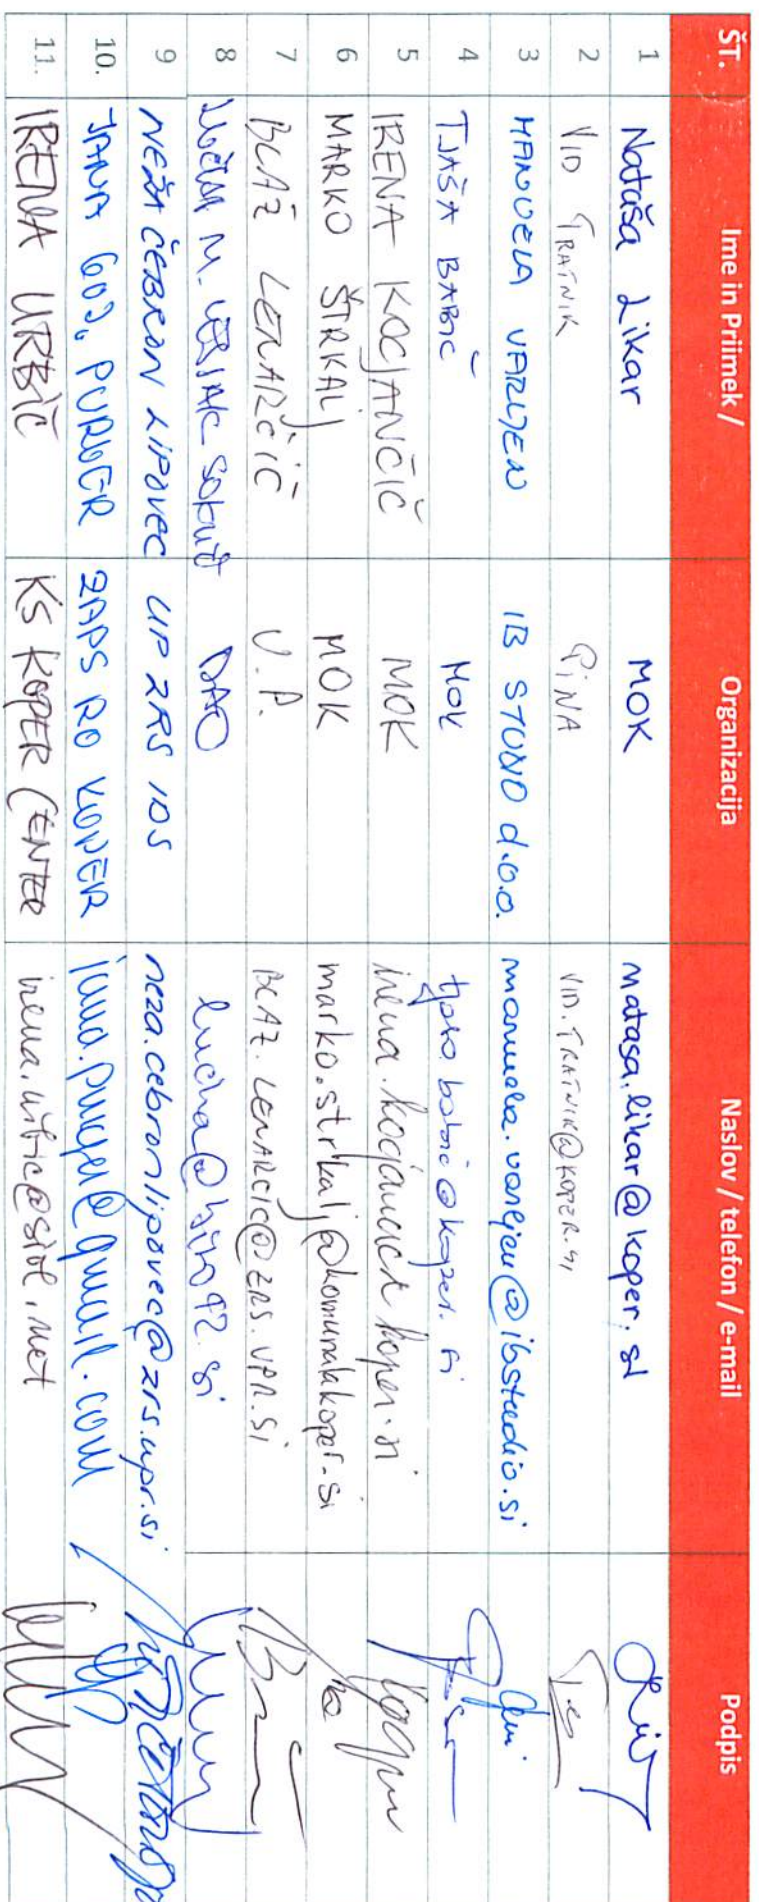 ŠT. Ime in Priimek / Organizacija Naslov / telefon / e-mail Podpis
1 Nataša Likar MOK natasa.likar@koper.si
2 VID TRATNIK PINA VID.TRATNIK@KOPER.SI
3 MANUELA VARLJEN IB STUDIO d.o.o. manuela.varljen@ibstudio.si
4 TJAŠA BABIČ MOK tjasa.babic@koper.si
5 IRENA KOCJANČIČ MOK irena.kocjancic koper.si
6 MARKO ŠTRKALJ MOK marko.strkalj@komunalakoper.si
7 BLAŽ LENARČIČ U.P. BLAZ.LENARCIC@ZRS.UPR.SI
8 M. DAO
9 NEŽA ČEBRON LIPOVEC UP ZRS IDS neza.cebronlipovec@zrs.upr.si
10. JANA PURGER ZAPS RO KOPER jana.purger@gmail.com
11. IRENA URBIČ KS KOPER CENTER irena.urbic@siol.net